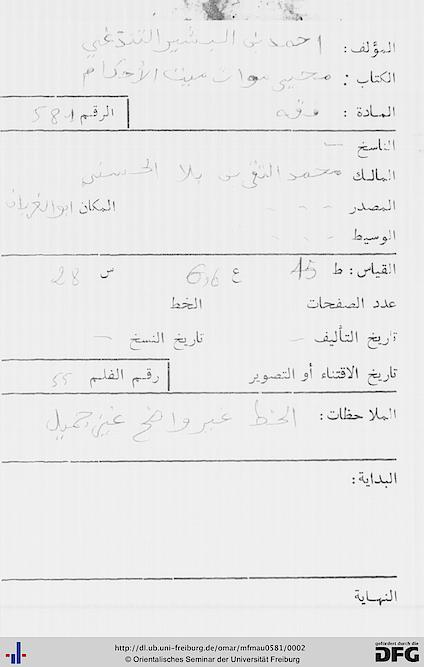 المؤلف: احمد بن البشير التندغي
الكتاب: محيي موات ميت الأحكام
المادة: فقه الرقم 581
الناسخ –
المالك محمد التقي بن بلا الحسني
المصدر - - - المكان
الوسيط - - -
القياس: ط 15 ع س 28
عدد الصفحات الخط
تاريخ التأليف – تاريخ النسخ –
تاريخ الاقتناء أو التصوير رقم الفلم 55
الملاحظات: الخط غير واضح غير جميل
البداية:
النهاية
http://dl.ub.uni-freiburg.de/omar/mfmau0581/0002
© Orientalisches Seminar der Universität Freiburg
gefördert durch die
DFG